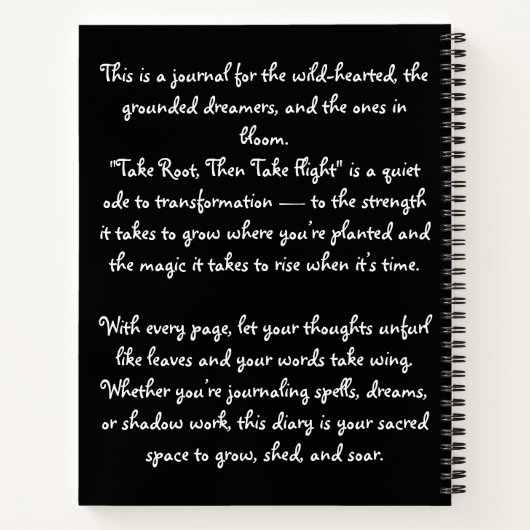 This is a journal for the wild-hearted, the
grounded dreamers, and the ones in
bloom.
"Take Root, Then Take Flight" is a quiet
ode to transformation — to the strength
it takes to grow where you're planted and
the magic it takes to rise when it's time.
With every page, let your thoughts unfurl
like leaves and your words take wing.
Whether you're journaling spells, dreams,
or shadow work, this diary is your sacred
space to grow, shed, and soar.